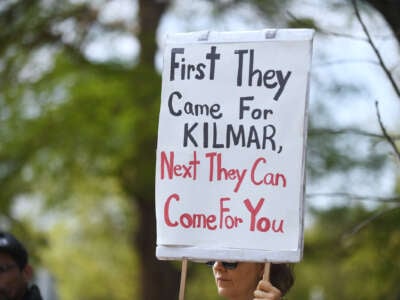 First They
Came For
KILMAR,
Next They Can
Come For You